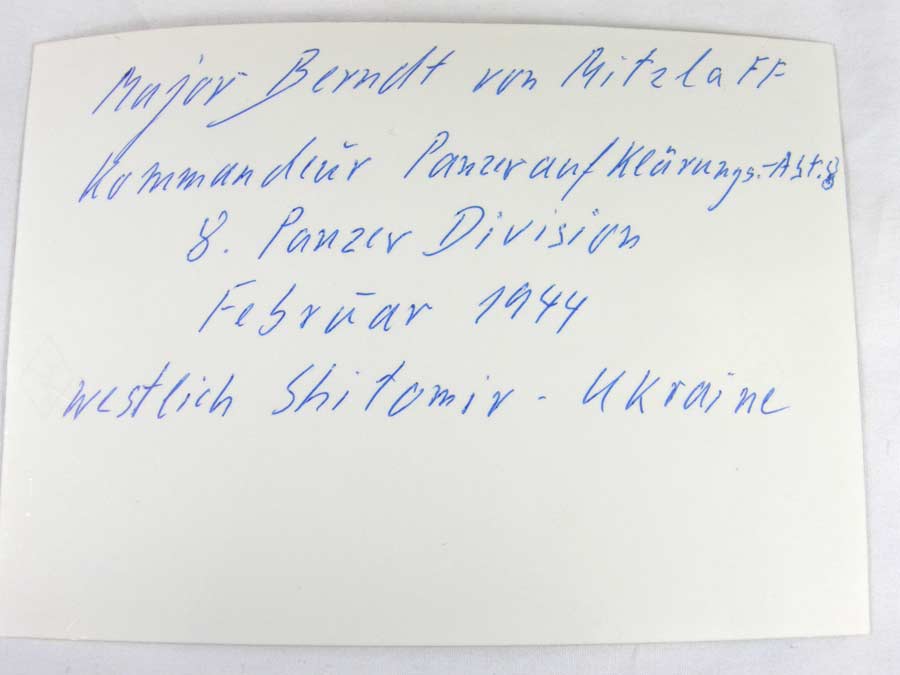 Major Berndt von Mitzlaff
Kommandeur Panzeraufklärungs.-Abt. 8
8. Panzer Division
Februar 1944
westlich Shitomir - Ukraine